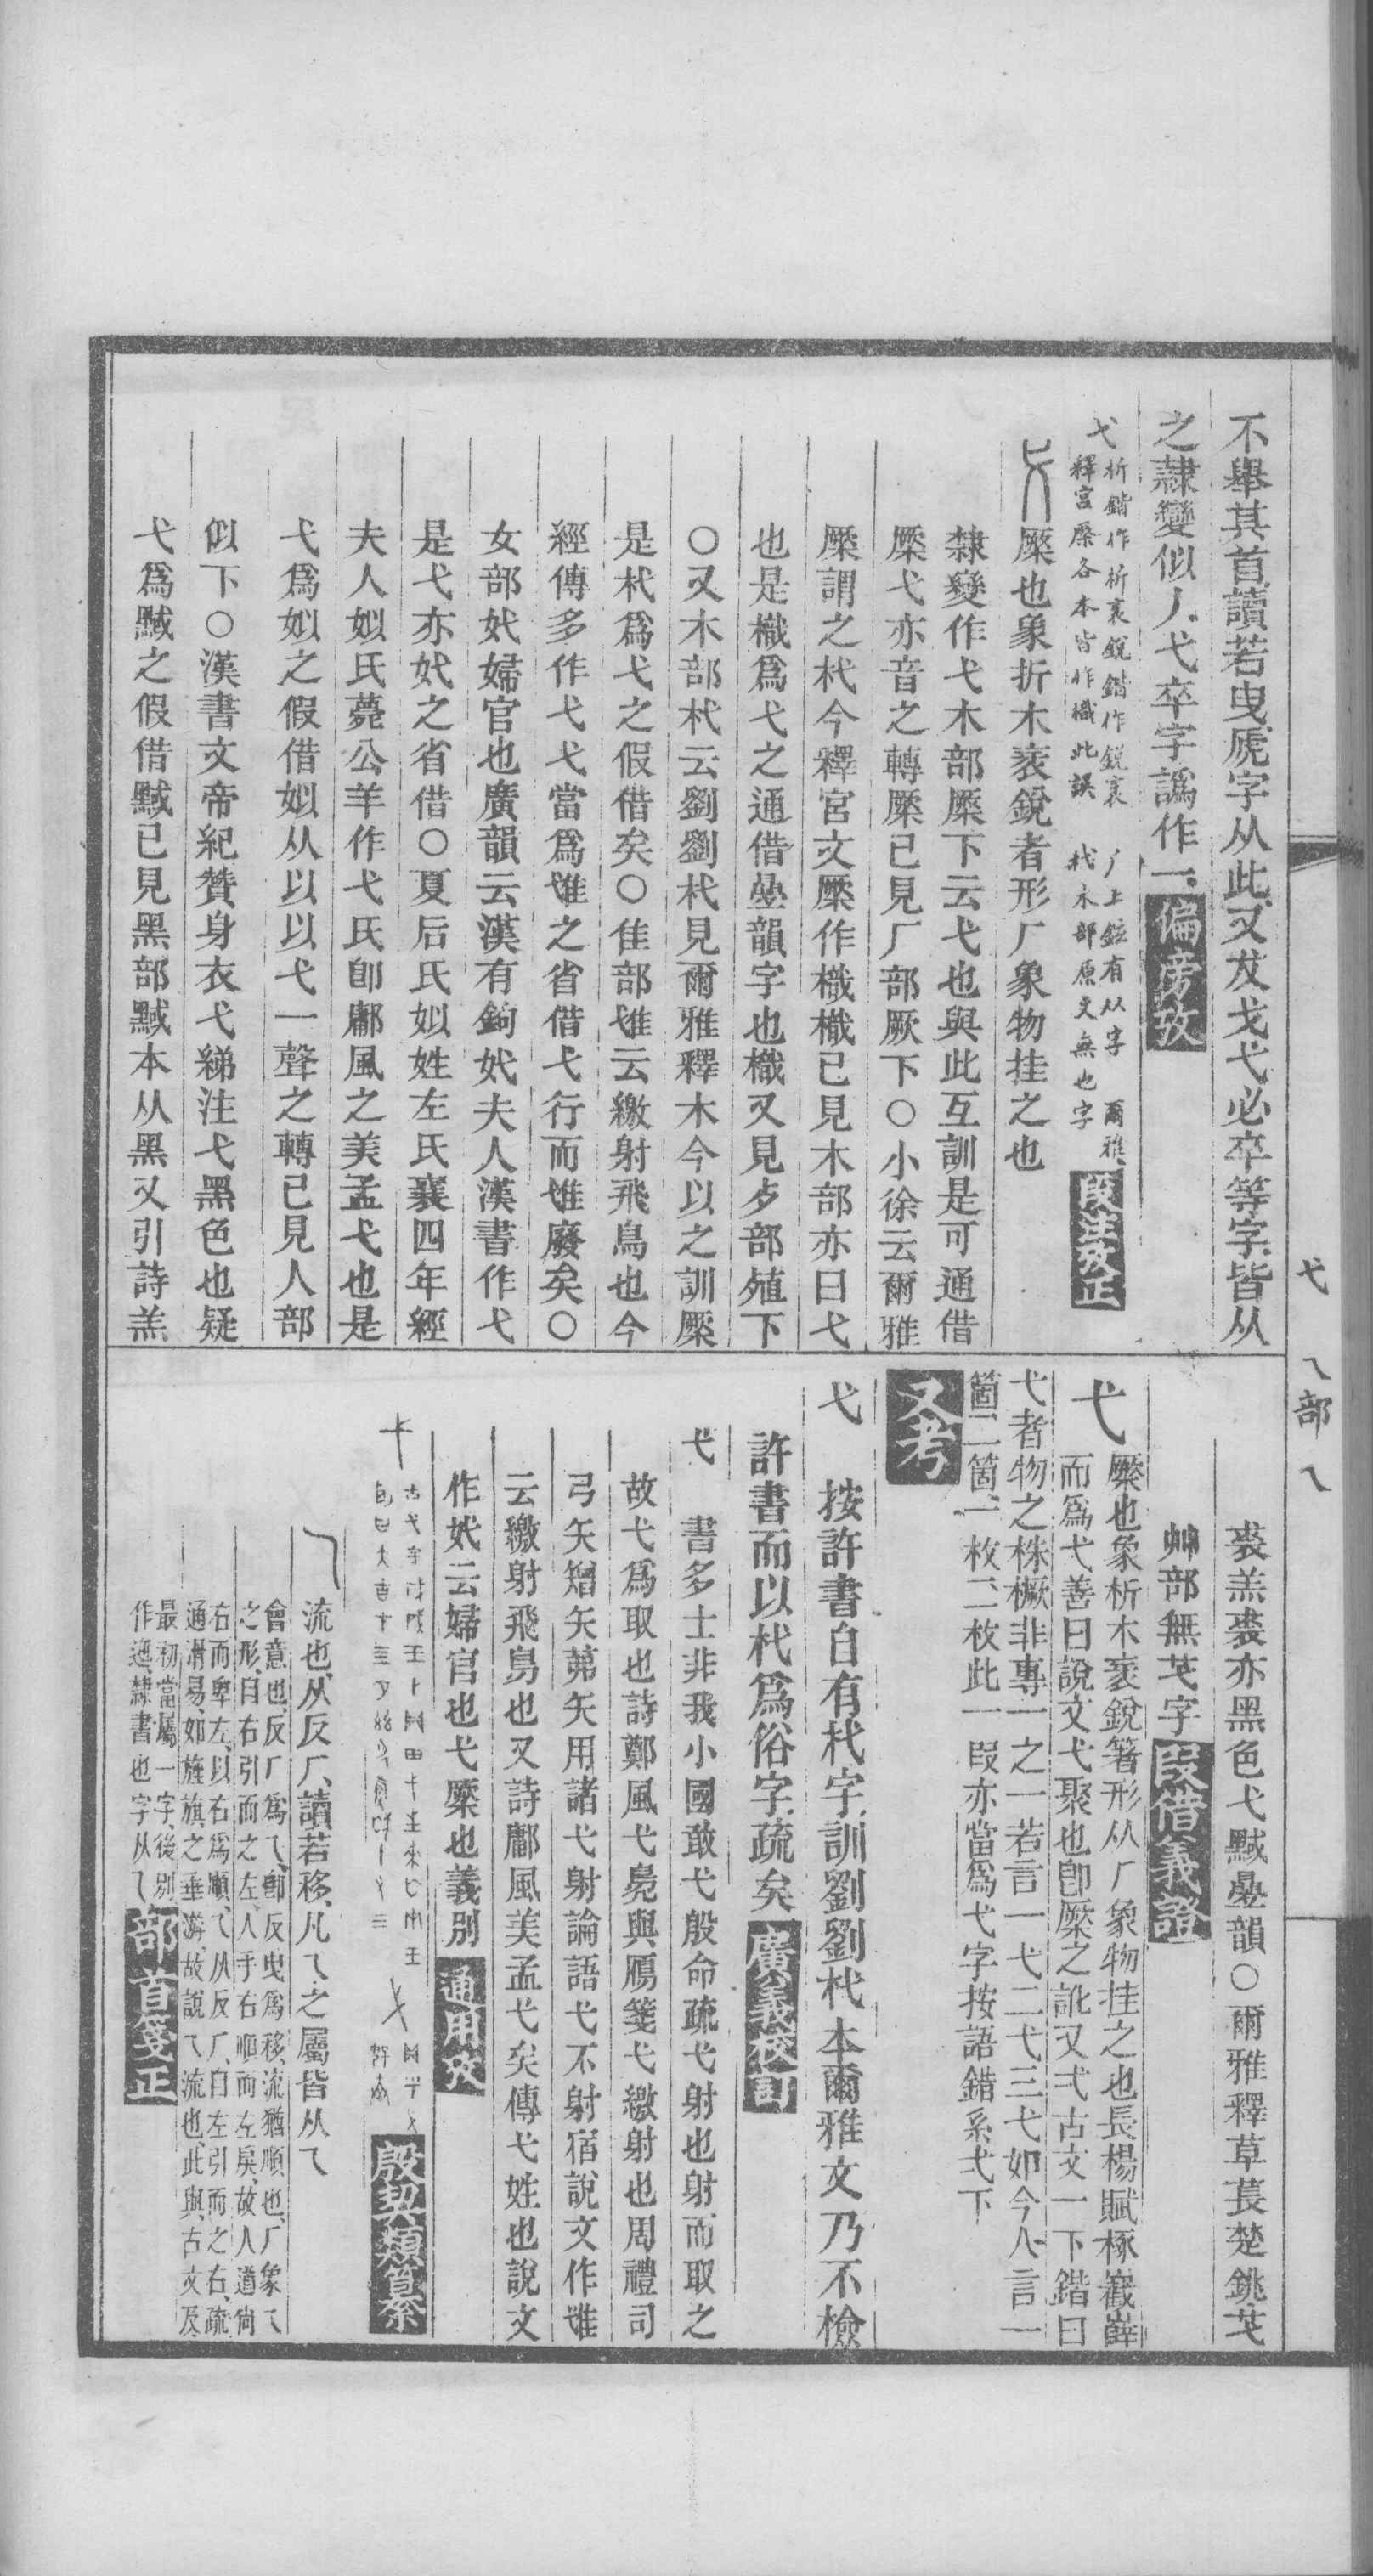 不舉其首讀若曳虒字从此又犮戈弋必卒等字皆从
之隷變似丿弋卒字譌作一偏旁攷
弋析鍇作折衺銳鍇作銳衺 厂上鉉有从字 爾雅
釋宮橜各本皆作樴此誤 杙木部原文無也字段注攷正
橜也象折木衺銳者形厂象物挂之也
隸變作弋木部橜下云弋也與此互訓是可通借
橜弋亦音之轉橜已見厂部厥下○小徐云爾雅
橜謂之杙今釋宮文橜作樴樴已見木部亦曰弋
也是樴爲弋之通借曡韻字也樴又見歺部殖下
○又木部杙云劉劉杙見爾雅釋木今以之訓橜
是杙爲弋之假借矣○隹部隿云繳射飛鳥也今
經傳多作弋弋當爲隿之省借弋行而隿廢矣○
女部妷婦官也廣韻云漢有鉤妷夫人漢書作弋
是弋亦妷之省借○夏后氏姒姓左氏襄四年經
夫人姒氏薨公羊作弋氏卽鄘風之美孟弋也是
弋爲姒之假借姒从以以弋一聲之轉已見人部
似下○漢書文帝紀贊身衣弋綈注弋黑色也疑
弋爲黓之假借黓已見黑部黓本从黑又引詩羔
弋 乁部 乁
裘羔裘亦黑色弋黓曡韻○爾雅釋草萇楚銚芅
艸部無芅字叚借義證
弋橜也象析木衺銳箸形从厂象物挂之也長楊賦椓嶻嶭
而爲弋善曰說文弋聚也卽橜之訛又弌古文一下鍇曰
弋者物之株橛非專一之一若言一弋二弋三弋如今人言一
箇二箇一枚二枚此一叚亦當爲弋字按語錯系弌下
又考
弋 按許書自有杙字訓劉劉杙本爾雅文乃不檢
許書而以杙爲俗字疏矣廣義校訂
弋 書多士非我小國敢弋殷命疏弋射也射而取之
故弋爲取也詩鄭風弋鳧與鴈箋弋繳射也周禮司
弓矢矰矢茀矢用諸弋射論語弋不射宿說文作隿
云繳射飛鳥也又詩鄘風美孟弋矣傳弋姓也說文
作妷云婦官也弋橜也義別通用攷
殷契類纂
流也从反厂讀若移凡乁之屬皆从乁
會意也反厂爲乁卽反曳爲移流猶順也厂象乁
之形自右引而之左人手右順而左戾故人道尙
右而卑左以右爲順乁从反厂自左引而之右疏
通滑易如旌旗之垂游故說乁流也此與古文及
最初當屬一字後別
作迆隸書也字从乁部首箋正